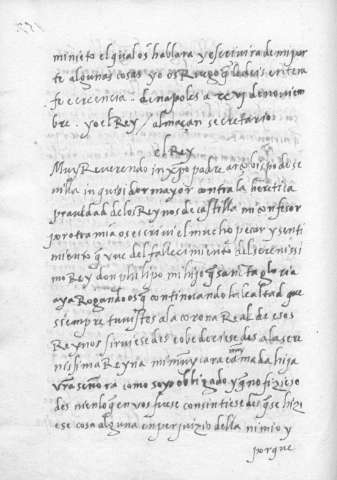 minieto el qual os hablara y escrivira de mi par
te algunas cosas yo os Ruego q le deis entera
fe e creencia . de napoles a xxvj de noviem
bre . yo el Rey / almaçan secretario
el Rey
Muy Reverendo in xpo padre arçobispo de se
villa inquisidor mayor contra la heretica
pravedad de los Reynos de castilla mi confesor
por otra mia os escrivi el mucho pesar y senti
miento q uve del fallecimiento del serenissi
mo Rey don philipo mi hijo q santa gloria
aya Rogando os q continoando la lealtad que
siempre tuvistes a la corona Real de esos
Reynos sirviesedes e obedeciesedes a la sere
nissima Reyna mi muy cara e muy amada hija
vra señora como soys obligado y q no fiziese
des ni en lo q en vos fuese consintiesedes q se hizi
ese cosa alguna en perjuizio della ni mio y
porque